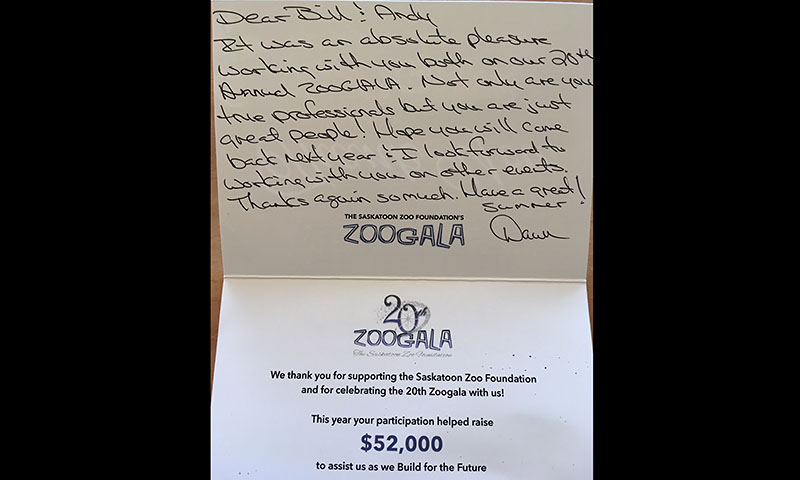 Dear Bill & Andy
It was an absolute pleasure
working with you both on our 20th
Annual ZOOGALA. Not only are you
true professionals but you are just
great people! Hope you will come
back next year & I look forward to
working with you on other events.
Thanks again so much. Have a great
summer!
Dawn
THE SASKATOON ZOO FOUNDATION'S
ZOOGALA
20th
ZOOGALA
The Saskatoon Zoo Foundation
We thank you for supporting the Saskatoon Zoo Foundation
and for celebrating the 20th Zoogala with us!
This year your participation helped raise
$52,000
to assist us as we Build for the Future